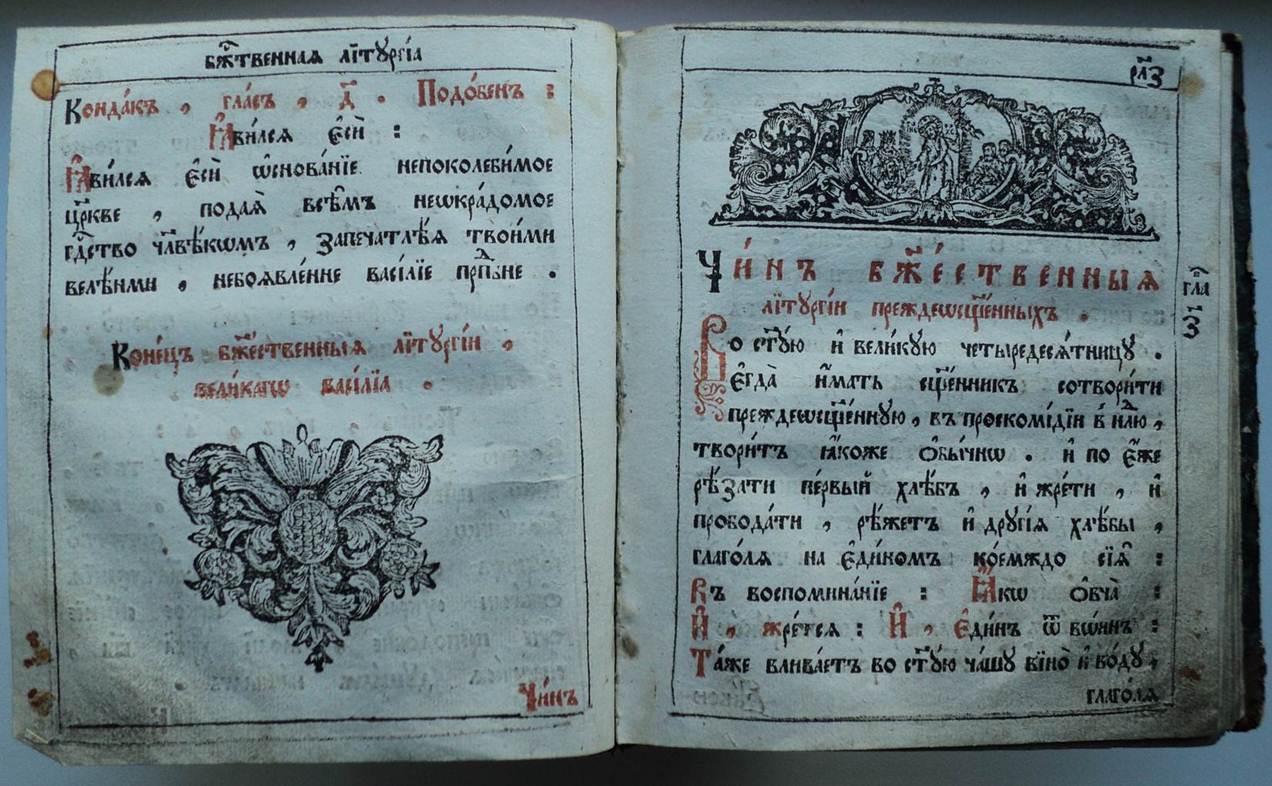 бж҃твенная лїтꙋргі́а
Конда́къ , гла́съ , д҃ . Подо́бенъ :
Ꙗ҆ви́лсѧ є҆сѝ :
Ꙗ҆ви́лсѧ є҆сѝ ѡ҆снова́нїе непоколеби́мое
цр҃кве , подаѧ̀ всѣ́мъ нешкра́домое
гд҇ство чл҃вѣ́кѡмъ , запечатлѣ́ѧ твои́ми
велѣ́ньми , небоѧвле́нне васі́лїе прп҇дбне .
Коне́цъ бж҃е́ственныѧ лїтꙋргі́и ,
вели́кагѡ васі́лїа .
Чи́нъ
рл҃з
Чи́нъ бж҃е́ственныѧ
лїтꙋргі́и преждеѡсщ҃е́нныхъ .
гла
з҃
Во ст҃ꙋ́ю и҆ вели́кꙋю четыредесѧ́тницꙋ .
є҆гда̀ и҆́мать сщ҃е́нникъ сотвори́ти
преждеѡсщ҃е́ннꙋю , въ проскомі́дїи в҃ нлю ,
твори́тъ ꙗ҆́коже ѡ҆бы́чнѡ . и҆ по є҆́же
рѣ́зати пе́рвый хлѣ́бъ , и҆ жре́ти , и҆
пробода́ти , рѣ́жетъ и҆ дрꙋгі́ѧ хлѣ́бы ,
глаго́лѧ на є҆ди́комъ кое́мждо сїѧ̑ :
Въ воспомина́нїе : Ꙗ҆́кѡ ѻ҆вча̀ :
И҆̀ , жре́тсѧ : И҆̀ , є҆ди́нъ ѿ во́инъ :
Та́же влива́етъ во ст҃ꙋ́ю ча́шꙋ вїно̀ и҆ во́дꙋ ,
глаго́лѧ